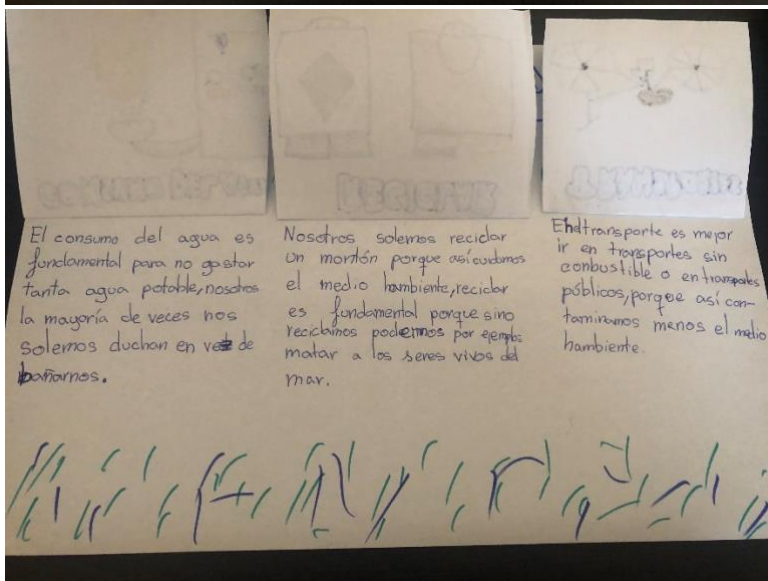 El consumo del agua es
fundamental para no gastar
tanta agua potable, nosotros
la mayoría de veces nos
solemos duchan en vez de
bañarnos.
Nosotros solemos reciclar
un montón porque así cuidamos
el medio hambiente, reciclar
es fundamental porque sino
reciclamos podemos por ejemplo
matar a los seres vivos del
mar.
En el transporte es mejor
ir en transportes sin
conbustible o en transportes
públicos, porque así con-
taminamos menos el medio
hambiente.